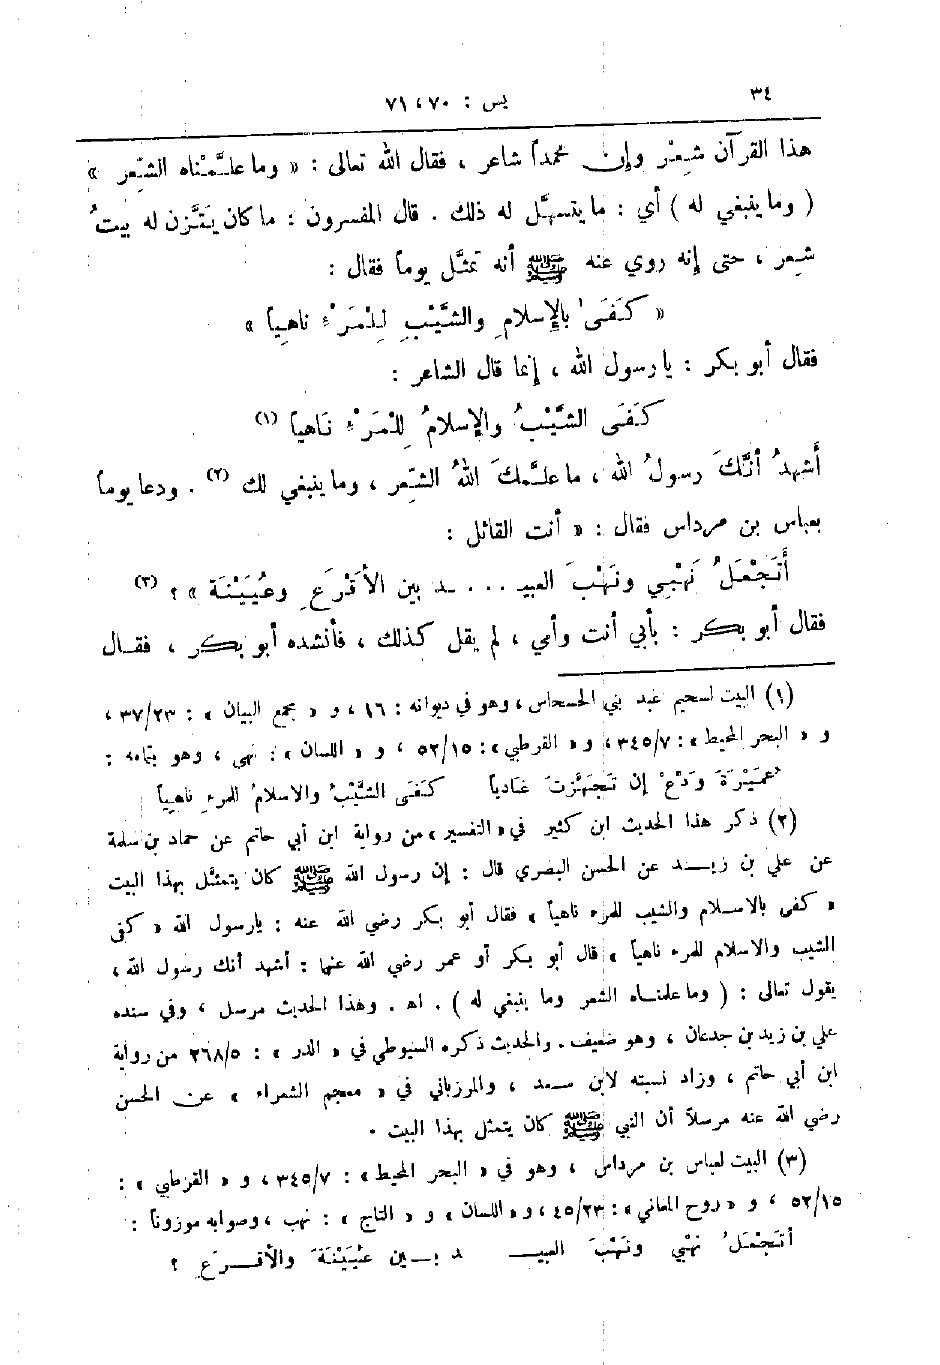 ٣٤
يس : ٧٠ ، ٧١
هذا القرآن شِعْر وإن محمداً شاعر ، فقال الله تعالى : « وما علَّمْناه الشِّعر »
( وما ينبغي له ) أي : ما يتسهَّل له ذلك . قال المفسرون : ما كان يَتَّزن له بيتُ
شِعر ، حتى إنه روي عنه ﷺ أنه تمثَّل يوماً فقال :
« كَفَى بالإِسلامِ والشَّيْبِ لِلْمَرْءِ ناهِياً »
فقال أبو بكر : يا رسول الله ، إنما قال الشاعر :
كَفَى الشَّيْبُ والإِسلامُ لِلْمَرْءِ نَاهياً (١)
أَشهدُ أنَّكَ رسولُ الله ، ما علَّمكَ اللهُ الشِّعر ، وما ينبغي لك (٢) . ودعا يوماً
بعباس بن مرداس فقال : « أنت القائل :
أَتَجْعَلُ نَهْبِي ونَهْبَ العبيـ . . . ـد بين الأَقْرَعِ وعُيَيْنَة » ؟ (٣)
فقال أبو بكر : بأبي أنت وأمي ، لم يقل كذلك ، فأنشده أبو بكر ، فقـال
(١) البيت لسحيم عبد بني الحسحاس ، وهو في ديوانه : ١٦ ، و « مجمع البيان » : ٣٧/٢٣ ،
و « البحر المحيط » : ٣٤٥/٧ ، و « القرطبي » : ٥٢/١٥ ، و « اللسان » : نهي ، وهو بتمامه :
عُمَيْرَةَ وَدِّعْ إن تَجَهَّزْتَ غادياً كَفَى الشَّيْبُ والاسلامُ للمرءِ ناهِياً
(٢) ذكر هذا الحديث ابن كثير في « التفسير » من رواية ابن أبي حاتم عن حماد بن سلمة
عن علي بن زيـد عن الحسن البصري قال : إن رسول الله ﷺ كان يتمثَّل بهذا البيت
« كفى بالاسلام والشيب للمرء ناهياً » فقال أبو بكر رضي الله عنه : يا رسول الله « كفى
الشيب والاسلام للمرء ناهياً » قال أبو بكر أو عمر رضي الله عنهما : أشهد أنك رسول الله ،
يقول تعالى : ( وما علمناه الشعر وما ينبغي له ) . اه . وهذا الحديث مرسل ، وفي سنده
علي بن زيد بن جدعان ، وهو ضعيف . والحديث ذكره السيوطي في « الدر » : ٢٦٨/٥ من رواية
ابن أبي حاتم ، وزاد نسبته لابن سعد ، والمرزباني في « معجم الشعراء » عن الحسن
رضي الله عنه مرسلاً أن النبي ﷺ كان يتمثل بهذا البيت .
(٣) البيت لعباس بن مرداس ، وهو في « البحر المحيط » : ٣٤٥/٧ ، و « القرطبي » :
٥٢/١٥ ، و « روح المعاني » : ٤٥/٢٣ ، و « اللسان » و « التاج » : نهب ، وصوابه موزوناً :
أتَجْعَلُ نَهْبي ونَهْبَ العبيـ ـد بـين عُيَيْنَةَ والأقـرَعِ ؟